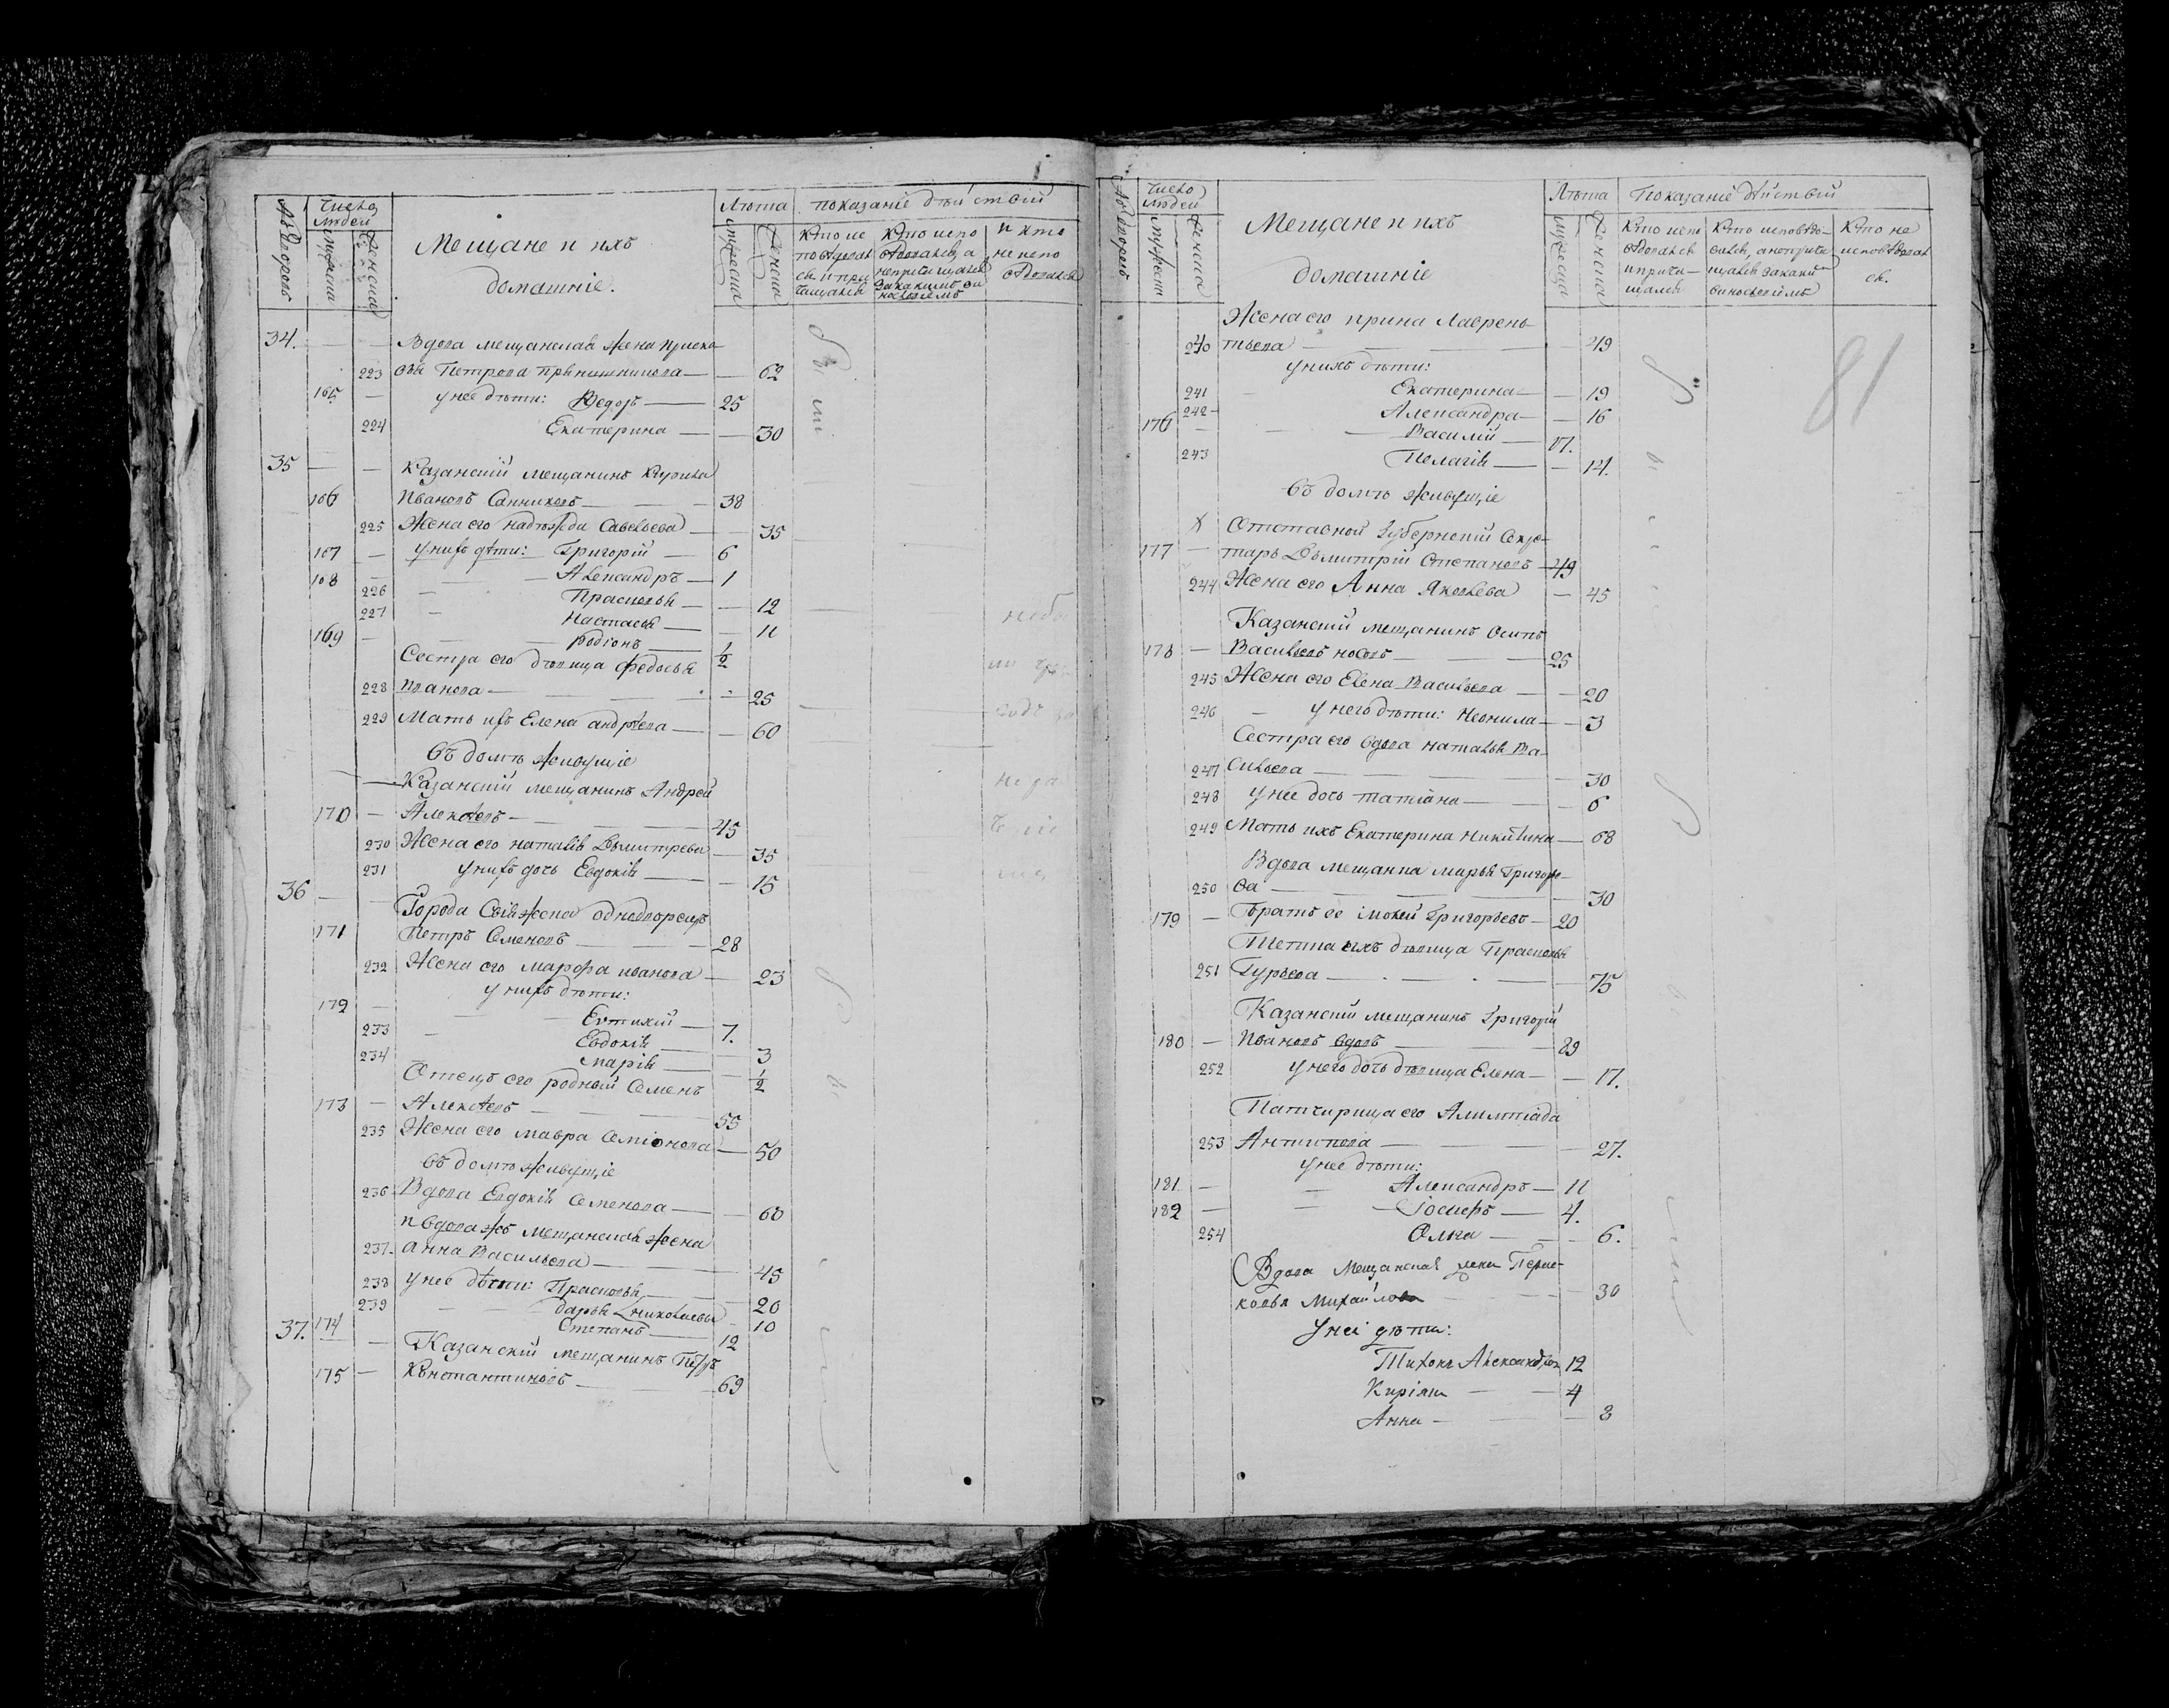 № дворовъ
Число людей
мужеска
женска
Мещане и ихъ домашніе.
Лѣта
мужеска
женска
показаніе дѣйствій
Кто испо
вѣдовал
ся и при
чащался
Кто испо
вѣдовался, а
непричащался
за какимъ ви
нословіемъ
и кто
не испо
вѣдовался
34. — — Вдова мещанская жена
223 Петрова — — 62
165. — у нее дѣти: Ѳедоръ — 25
224 Екатерина — — 30
35 — — Казанскій мещанинъ Кирила
166 Ивановъ Санниковъ — 38
225 Жена его надѣжда Савельева — — 35
167 — у нихъ дѣти: Григорій — 6
168 — Александръ — 1
226 — Прасковья — — 12
227 — Настасья — — 11
169 — Родіонъ — 1/2
Сестра его дѣвица Ѳедосья
228 Иванова — — 25
229 Мать ихъ Елена андрѣева — — 60
въ домѣ живущіе
— Казанскій мещанинъ Андрей
170 — Алексѣевъ — 45
230 Жена его наталія Дьмитрева — 35
231 у нихъ дочь Евдокія — — 15
36 — — Города Свіяжска однодворецъ
171 Петръ Семеновъ — 28
232 Жена его марѳа иванова — 23
у нихъ дѣти:
172 — Евтихій — 7.
233 — Евдокія — 3
234 марія — 1/2
Отецъ его родный Семенъ
173 — Алексѣевъ — 55
235 Жена его мавра Семіонова — 50
въ домѣ живущіе
236 Вдова Евдокія Семенова — — 60
и вдова жъ мещанская жена
237. анна Васильева — 45
238 у нее дѣти: Прасковья — 20
239 — дарья Николаевы — 10
174 Степанъ — 12
37. — Казанскій мещанинъ Петръ
175 — Константиновъ — 69
№ дворовъ
Число людей
мужеска
женска
Мещане и ихъ
домашніе
Лѣта
мужеска
женска
Показаніе дѣйствій
Кто испо
вѣдовался
и прича-
щался
Кто исповѣдо-
вался, а неприча
щался за каким
винословіемъ
Кто не
исповѣдовал
ся.
81
Жена его ирина Лаврень-
240 тьева — 49
у нихъ дѣти:
241 Екатерина — 19
242 Александра — 16
176 — Василій — 17.
243 Пелагія — 14.
въ домѣ живущіе
х Отставной Губернскій Секре-
177 — тарь Дьмитрій Степановъ — 49
244 Жена его Анна Яковлева — 45
Казанскій мещанинъ Осипъ
178 — Васильевъ — 25
245 Жена его Елена Васильева — — 20
246 — у него дѣти: Неонила — — 3
Сестра его вдова наталья Ва-
247 сильева — 30
248 у нее дочь татіана — — 6
249 Мать ихъ Екатерина Никитина — 68
Вдова мещанка марья Григорье-
250 ва — 30
179 — Братъ ее Григорьевъ — 20
Тетка ихъ дѣвица Прасковья
251 Гурьева — 75
Казанскій мещанинъ Григорій
180 — Ивановъ вдовъ — 89
252 у него дочь дѣвица Елена — — 17.
Патчирица его
253 Антипова — 27.
у нее дѣти:
181 — — Александръ — 11
182 — — Іосифъ — 4.
254 Ольга — — 6.
Вдова Мещанская жена
Михайлова — 30
у неі дѣти:
Тихонъ Александръ 12
4
Анна — 3